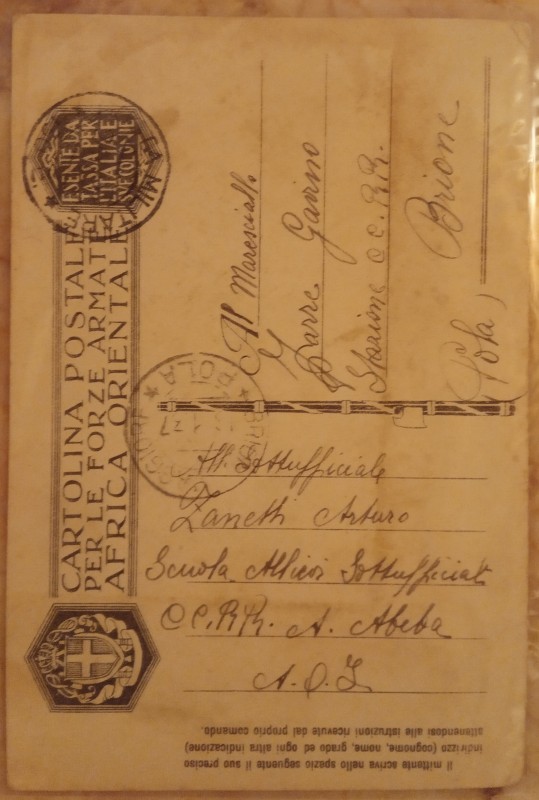 CARTOLINA POSTALE
PER LE FORZE ARMATE
AFRICA ORIENTALE
ESENTE DA
TASSA PER
L'ITALIA E
SUE COLONIE
Il mittente scriva nello spazio seguente il suo preciso
indirizzo (cognome, nome, grado ed ogni altra indicazione)
attenendosi alle istruzioni ricevute dal proprio comando.
All. Sottufficiale
Zanetti Arturo
Scuola Allievi Sottufficiali
CC. RR. A. Abeba
A.O.I.
Al Maresciallo
Gavino
Stazione CC. RR.
Brione
(Pola)
POLA